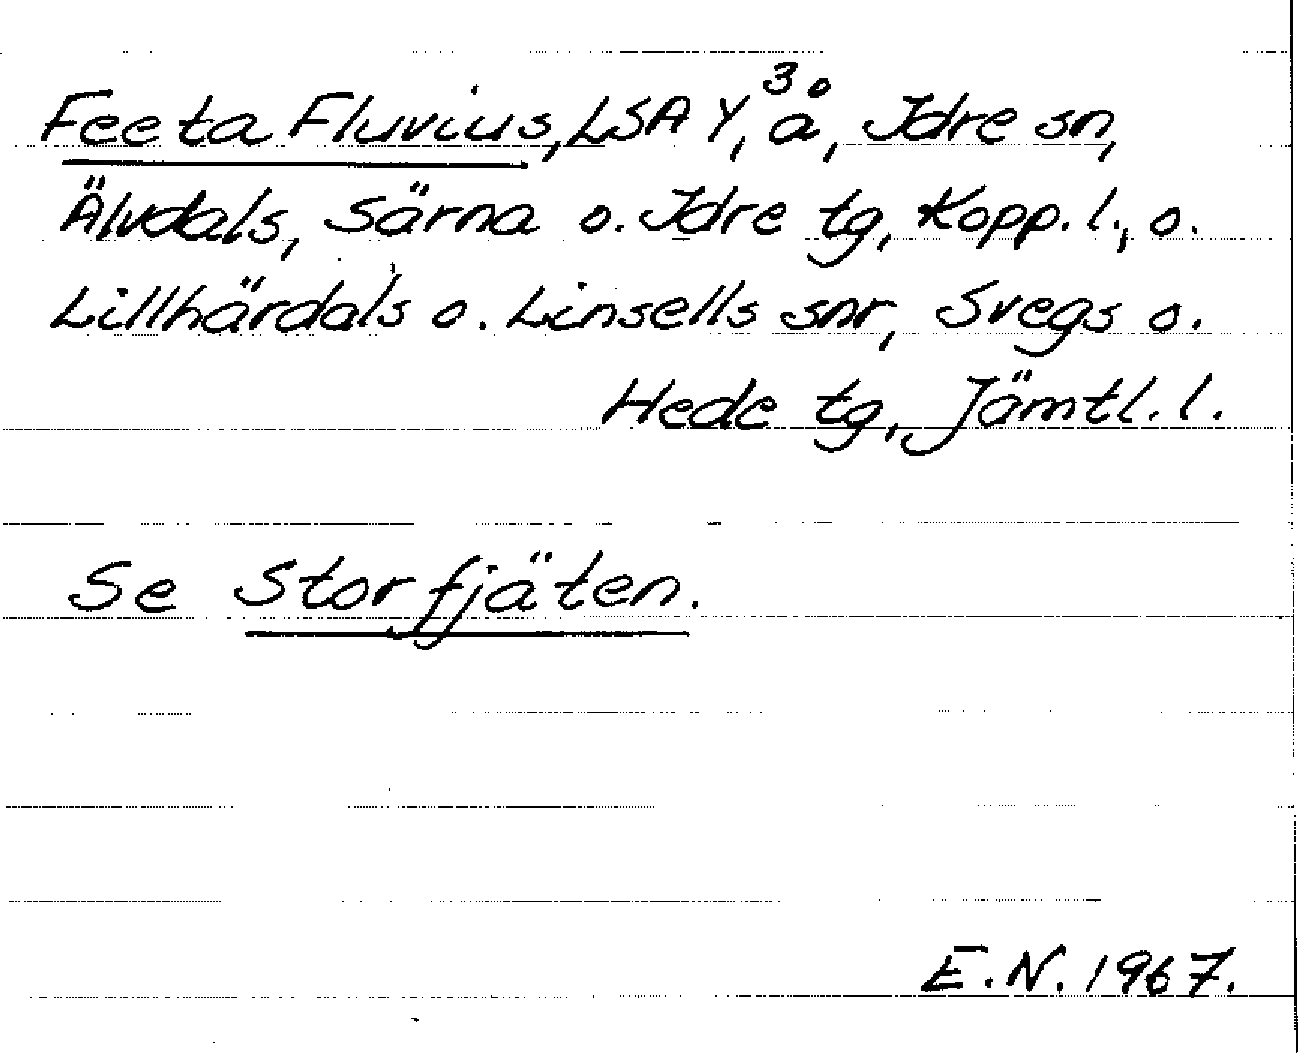 Feeta Fluvius, LSA Y, ³å, Idre sn,
Älvdals, Särna o. Idre tg, Kopp. l., o.
Lillhärdals o. Linsells snr, Svegs o.
Hede tg, Jämtl. l.
Se Storfjäten.
E.N. 1967.